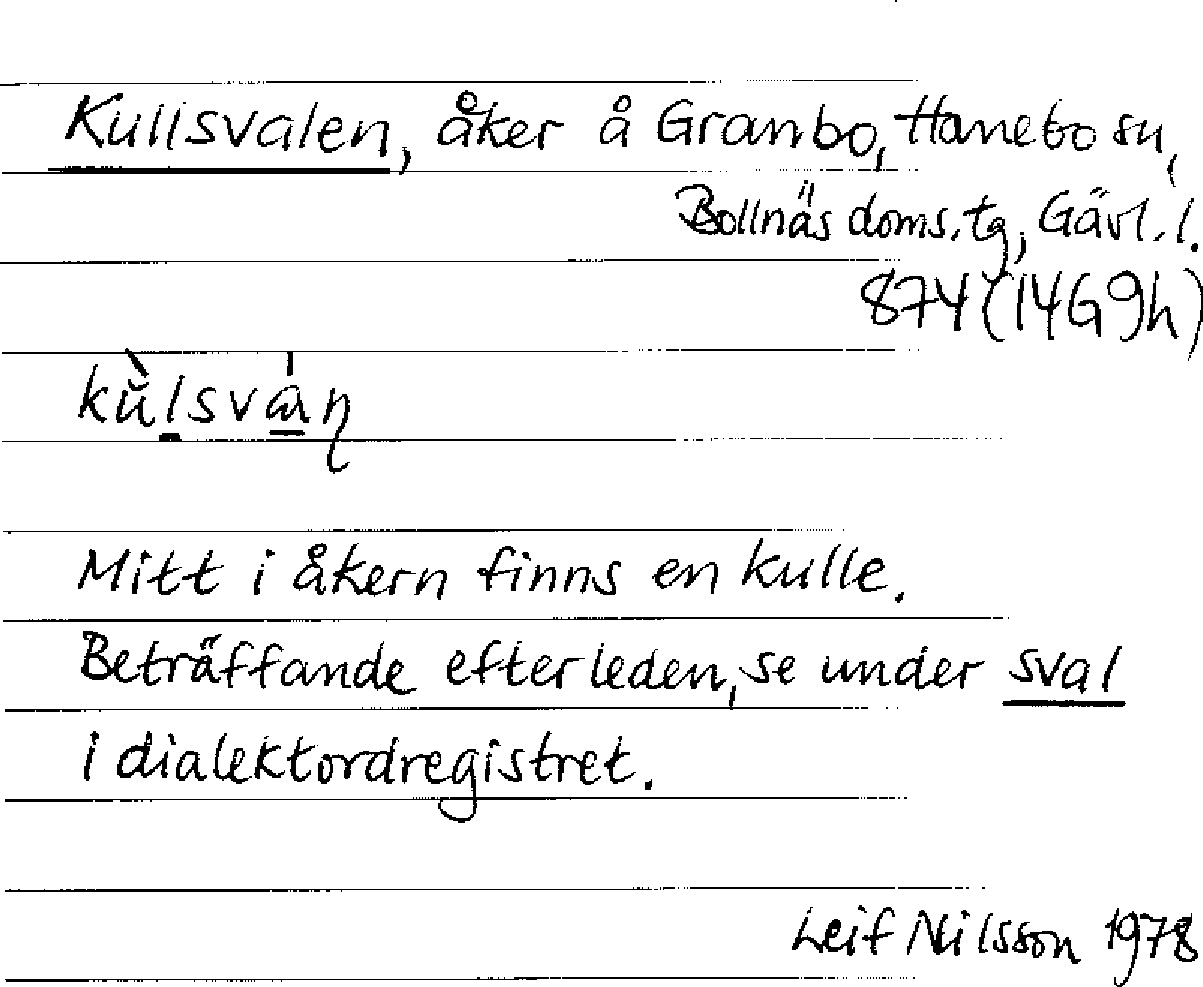 Kullsvalen, åker å Granbo, Hanebo sn,
Bollnäs doms.tg, Gävl.l.
874 (14G9h)
Mitt i åkern finns en kulle.
Beträffande efterleden, se under sval
i dialektordregistret.
Leif Nilsson 1978